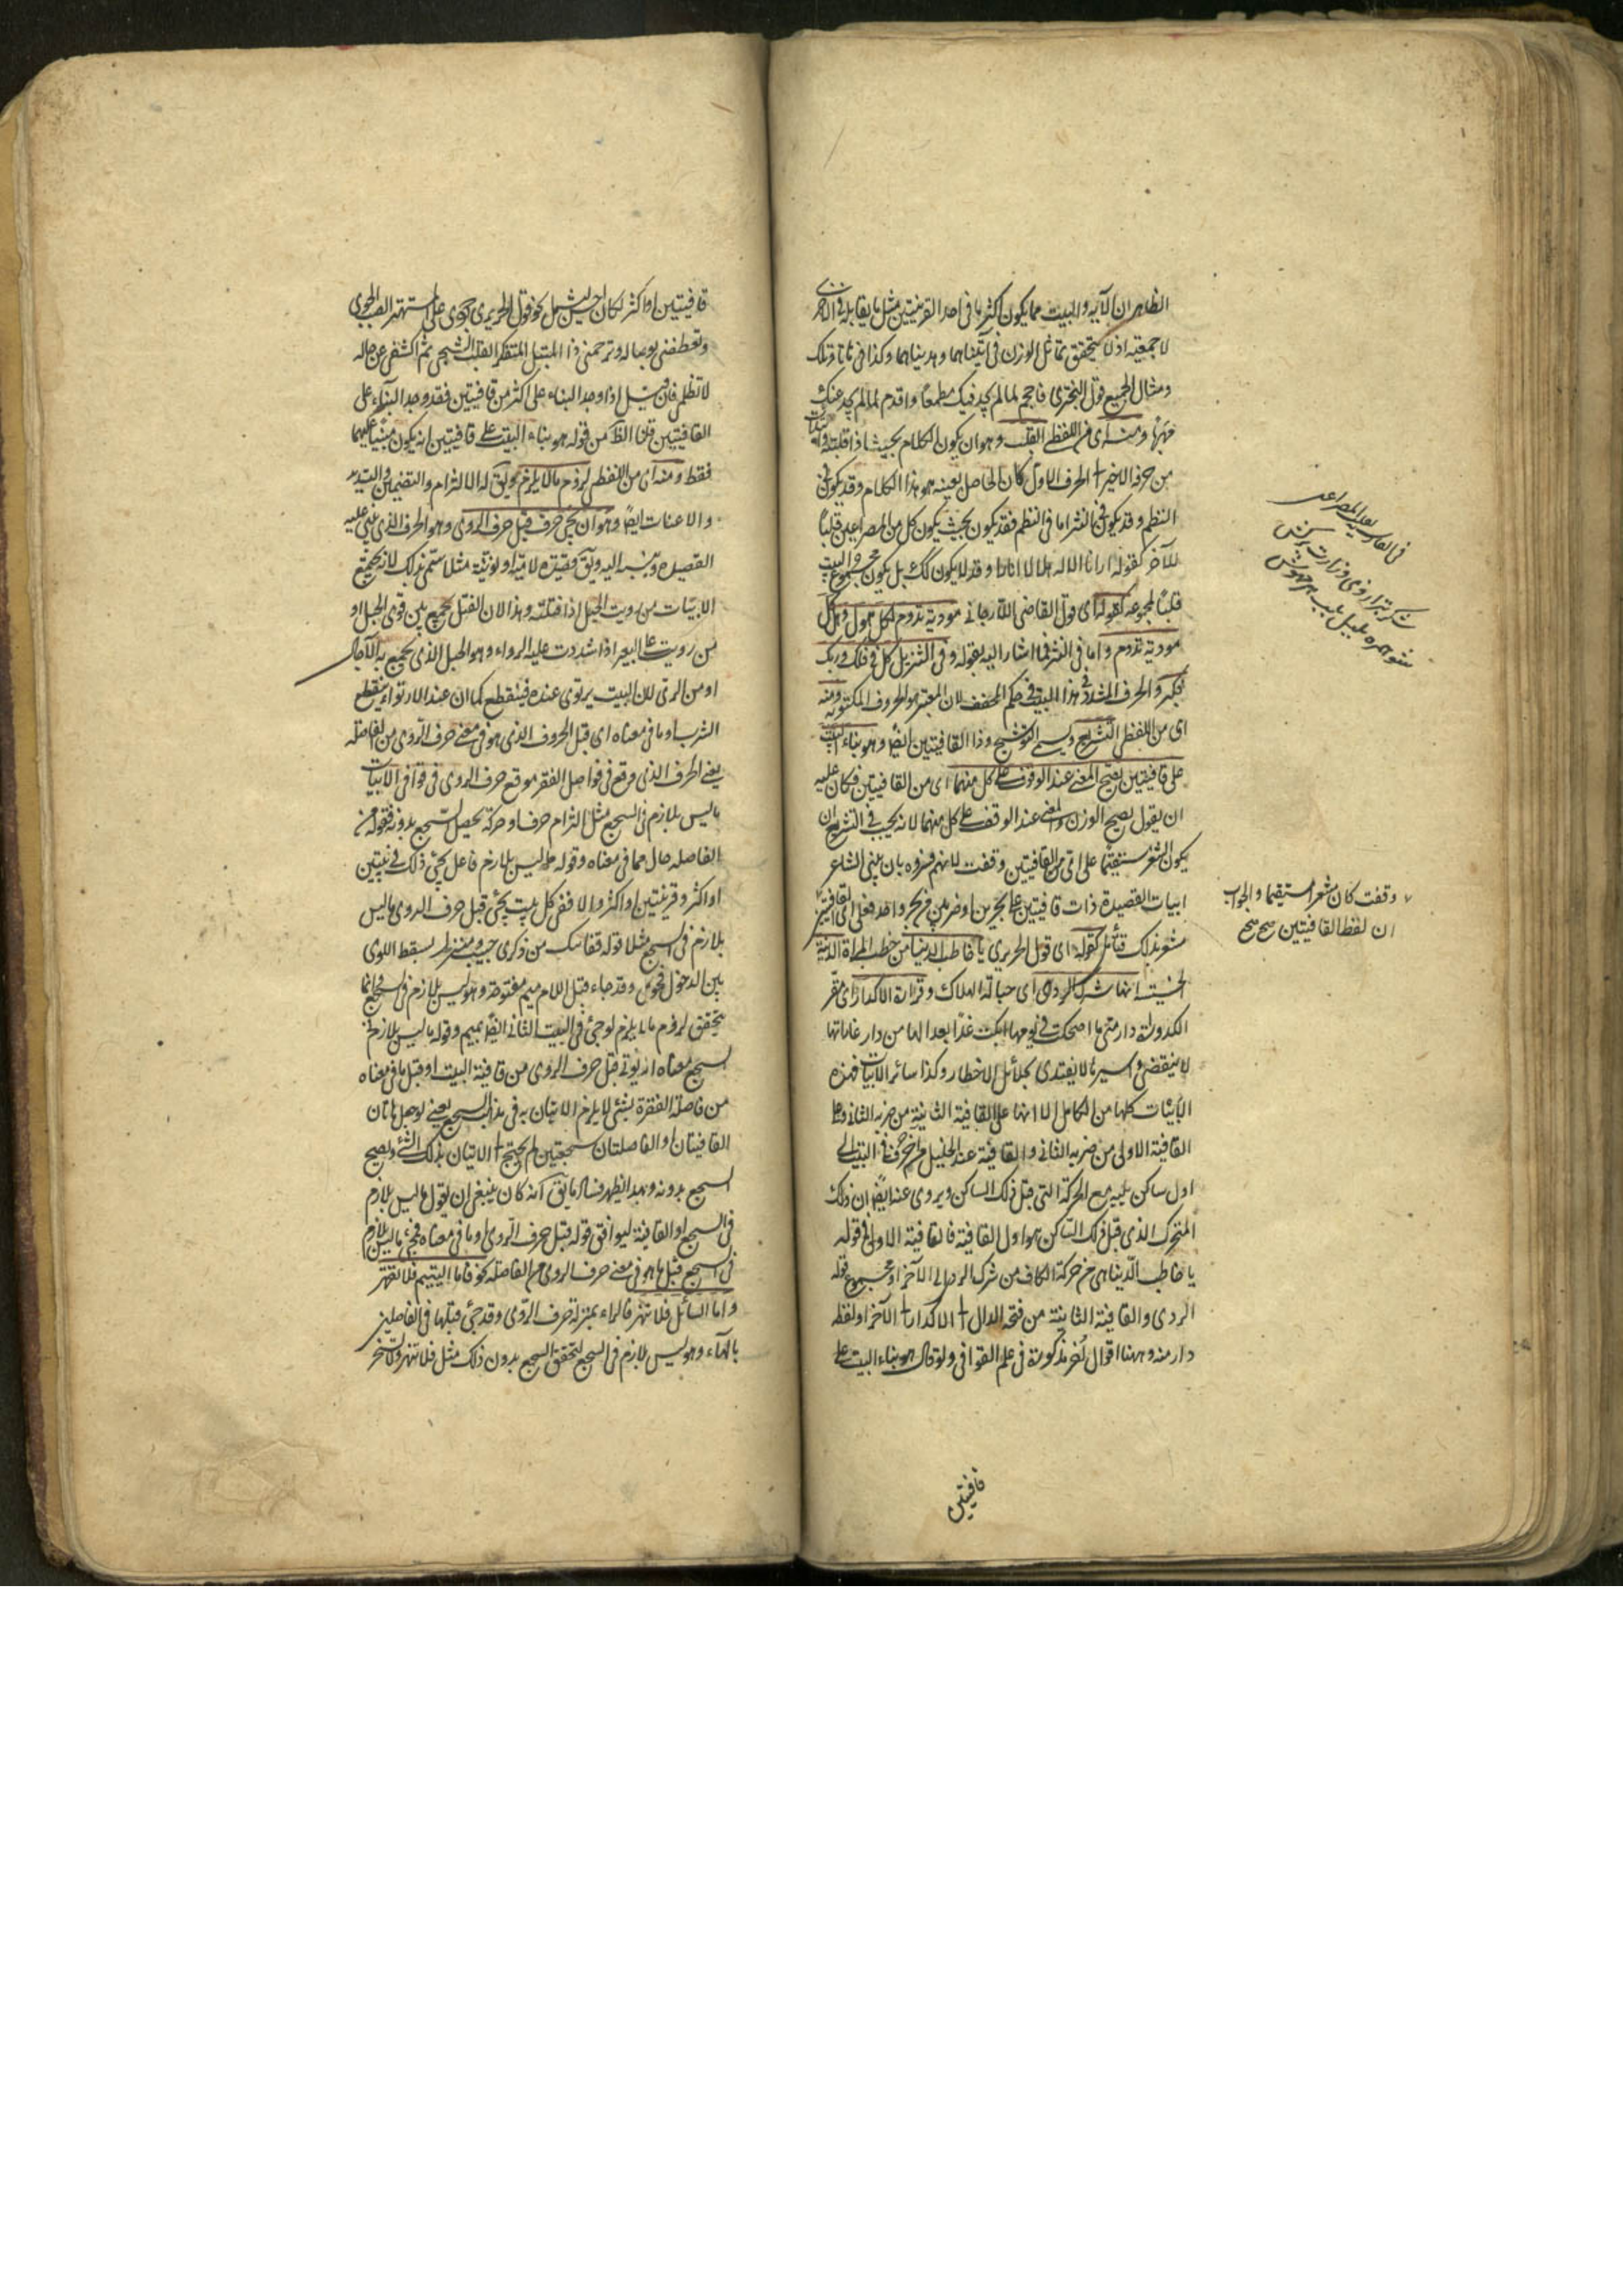 الظاهر ان الآية والبيت مما يكون اكثر ما فى احد القرينتين مثل ما يقابله فى الاخرى
لا جميعه اذ لا يتحقق تماثل الوزن فى آتيناهما وهديناهما وكذا فى هاتا وتلك
ومثال الجميع قول البحترى فاحجم لما لم يجد فيك مطمعًا واقدم لما لم يجد عنك
مهربًا ومنه اى من اللفظى القلب وهو ان يكون الكلام بحيث اذا قلبته وابتدأت
من حرفه الاخير الى الحرف الاول كان الحاصل بعينه هو هذا الكلام وقد يكون فى
النظم وقد يكون فى النثر اما فى النظم فقد يكون بحيث يكون كل من المصراعين قلبًا
للآخر كقوله ارانا الاله هلالا انارا وقد لا يكون كك بل يكون مجموع البيت
قلبًا لمجموعه كقوله اى قول القاضى الارجانى مودته تدوم لكل هول وهل كل
مودته تدوم واما فى النثر فما اشار اليه بقوله وفى التنزيل كل فى فلك وربك
فكبر والحرف المشدد فى هذا الباب فى حكم المخفف لان المعتبر هو الحروف المكتوبة ومنه
اى من اللفظى التشريع ويسمى التوشيح وذا القافيتين ايضًا وهو بناء البيت
على قافيتين يصح المعنى عند الوقوف على كل منهما اى من القافيتين فكان عليه
ان يقول يصح الوزن والمعنى عند الوقف على كل منهما لانه يجب فى التشريع ان
يكون الشعر مستقيمًا على اى القافيتين وقفت لانهم فسروه بان يبنى الشاعر
ابيات القصيدة ذات قافيتين على بحرين او ضربين من بحر واحد فعلى اى القافيتين
شعر بذلك فتأمل كقوله اى قول الحريرى يا خاطب الدنيا من خطب المرأة الدنية
الخسيسة انها شرك الردى اى حبالة الهلاك وقرارة الاكدار اى مقر
الكدورات دار متى ما اضحكت فى يومها ابكت غدًا بعدا لها من دار غاراتها
لا تنقضى واسيرها لا يفتدى بجلائل الاخطار وكذا سائر الابيات فهذه
الابيات كلها من الكامل الا انها على القافية الثانية من ضربه الثانى وعلى
القافية الاولى من ضربه الثانى والقافية عند الخليل من آخر حرف فى البيت الى
اول ساكن يليه مع الحركة التى قبل ذلك الساكن ويروى عنه ايضًا ان ذلك
المتحرك الذى قبل ذلك الساكن هو اول القافية فالقافية الاولى فى قوله
يا خاطب الدنيا هى من حركة الكاف من شرك الردى الى الآخر او مجموع قوله
الردى والقافية الثانية من فتحة الدال الى الاكدار الى الآخر او لفظ
دار منه وههنا اقوال اخر مذكورة فى علم القوافى ولو قال هو بناء البيت على
قافيتين
فى الفارسية
شكر بترازوى وزارت بركش
شو همره بلبل بلب هر مهوش
وقفت كان شعرا مستقيما والجواب
ان لفظ القافيتين صح صح
قافيتين او اكثر لكان احسن ليشمل نحو قول الحريرى جودى على المستهتر الصب الجوى
وتعطفى بوصاله وترحمى ذا المبتلى المتفكر القلب الشجى ثم اكشفى عن حاله
لا تظلمى فان قيل اذا وجد البناء على اكثر من قافيتين فقد وجد البناء على
القافيتين قلنا الظ من قوله هو بناء البيت على قافيتين انه يكون مبنيًا عليهما
فقط ومنه اى من اللفظى لزوم ما لا يلزم ويق له الالتزام والتضمين والتشديد
والاعنات ايضًا وهو ان يجئ حرف قبل حرف الروى وهو الحرف الذى يبنى عليه
القصيدة وينسب اليه ويق قصيدة لامية او نونية مثلا سمى بذلك لانه يجمع
الابيات من رويت الحبل اذا فتلته وهذا لان الفتل يجمع بين قوى الحبل او
من رويت على البعير اذا شددت عليه الرواء وهو الحبل الذى يجمع به الاحمال
او من الرى لان البيت يرتوى عنده فينقطع كما ان عند الارتواء ينقطع
الشرب او ما فى معناه اى قبل الحروف الذى هو فى معنى حرف الروى من الفاصلة
يعنى الحرف الذى وقع فى فواصل الفقر موقع حرف الروى فى قوافى الابيات
ما ليس بلازم فى السجع مثل التزام حرف او حركة يحصل السجع بدونه فقوله من
الفاصلة حال مما فى معناه وقوله ما ليس بلازم فاعل يجئ ذلك فى بيتين
او اكثر وقرينتين او اكثر والا ففى كل بيت يجئ قبل حرف الروى ما ليس
بلازم فى السجع مثلا قوله قفا نبك من ذكرى حبيب ومنزل بسقط اللوى
بين الدخول فحومل وقد جاء قبل اللام ميم مفتوحة وهو ليس بلازم فى السجع وانما
يتحقق لزوم ما لا يلزم لو جئ فى البيت الثانى ايضًا بميم وقوله ما ليس بلازم فى
السجع معناه ان يؤتى قبل حرف الروى من قافية البيت او قبل ما فى معناه
من فاصلة الفقرة بشئ لا يلزم الاتيان به فى هذا السجع يعنى لو جعل هاتان
القافيتان او الفاصلتان سجعتين لم يحتج الى الاتيان بذلك الشئ ويصح
السجع بدونه وبهذا يظهر فساد ما يق انه كان ينبغى ان يقول ما ليس بلازم
فى السجع او القافية ليوافق قوله قبل حرف الروى او ما فى معناه فمجئ ما ليس بلازم
فى السجع قبل ما هو فى معنى حرف الروى من الفاصلة نحو فاما اليتيم فلا تقهر
واما السائل فلا تنهر فالراء بمنزلة حرف الروى وقد جئ قبلها فى الفاصلتين
بالهاء وهو ليس بلازم فى السجع لتحقق السجع بدون ذلك مثل فلا تنهر ولا تسخر